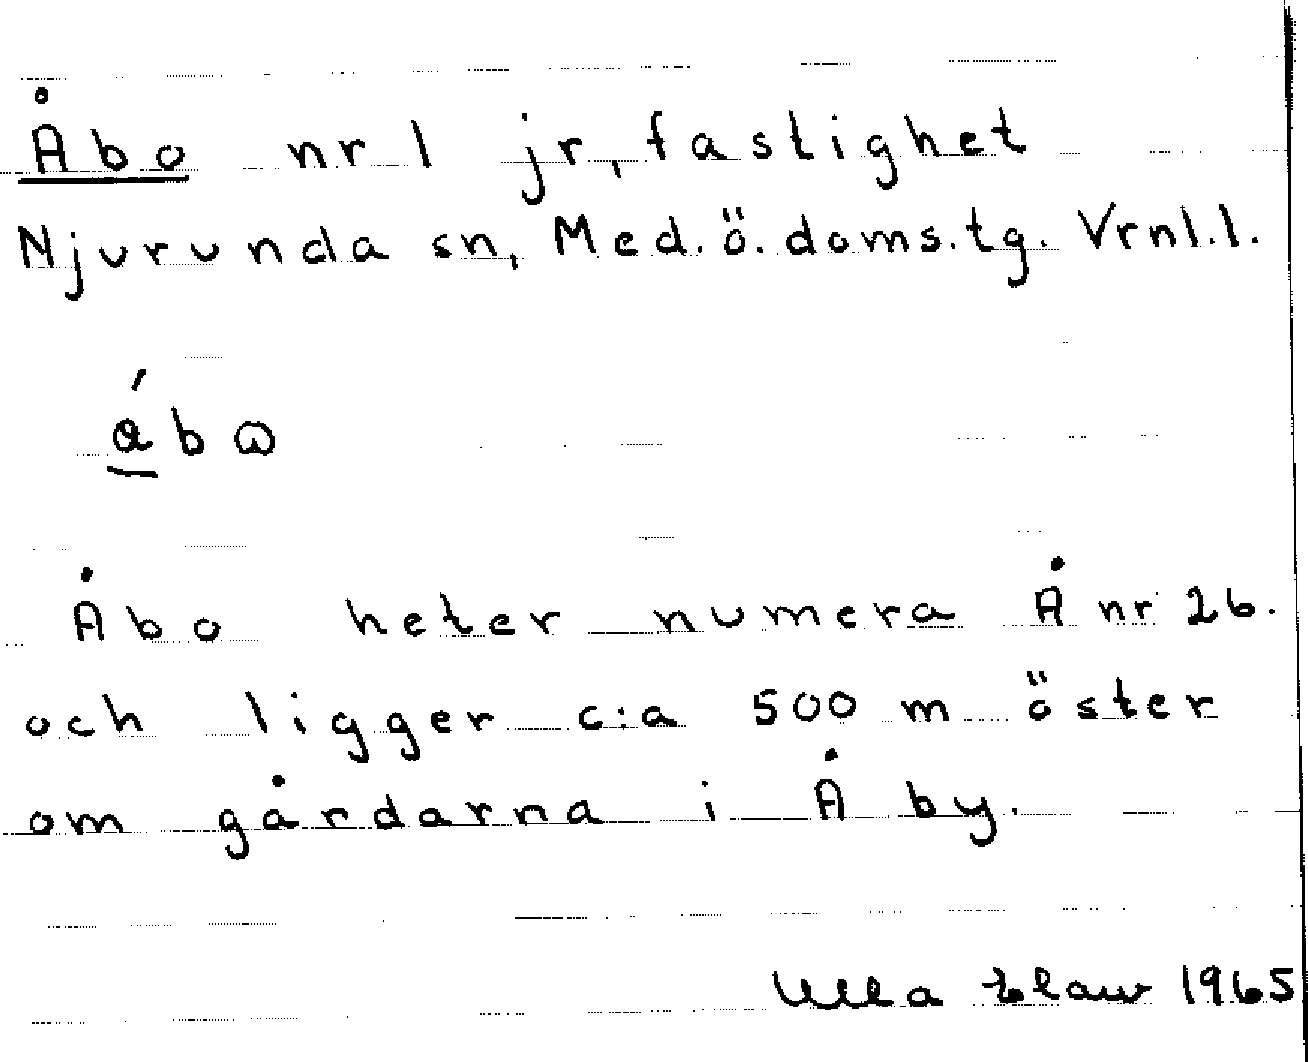 Åbo nr 1 jr, fastighet
Njurunda sn, Med.ö.doms.tg. Vrnl.l.
Åbo heter numera Å nr 26.
och ligger c:a 500 m öster
om gårdarna i Å by.
Ulla 1965